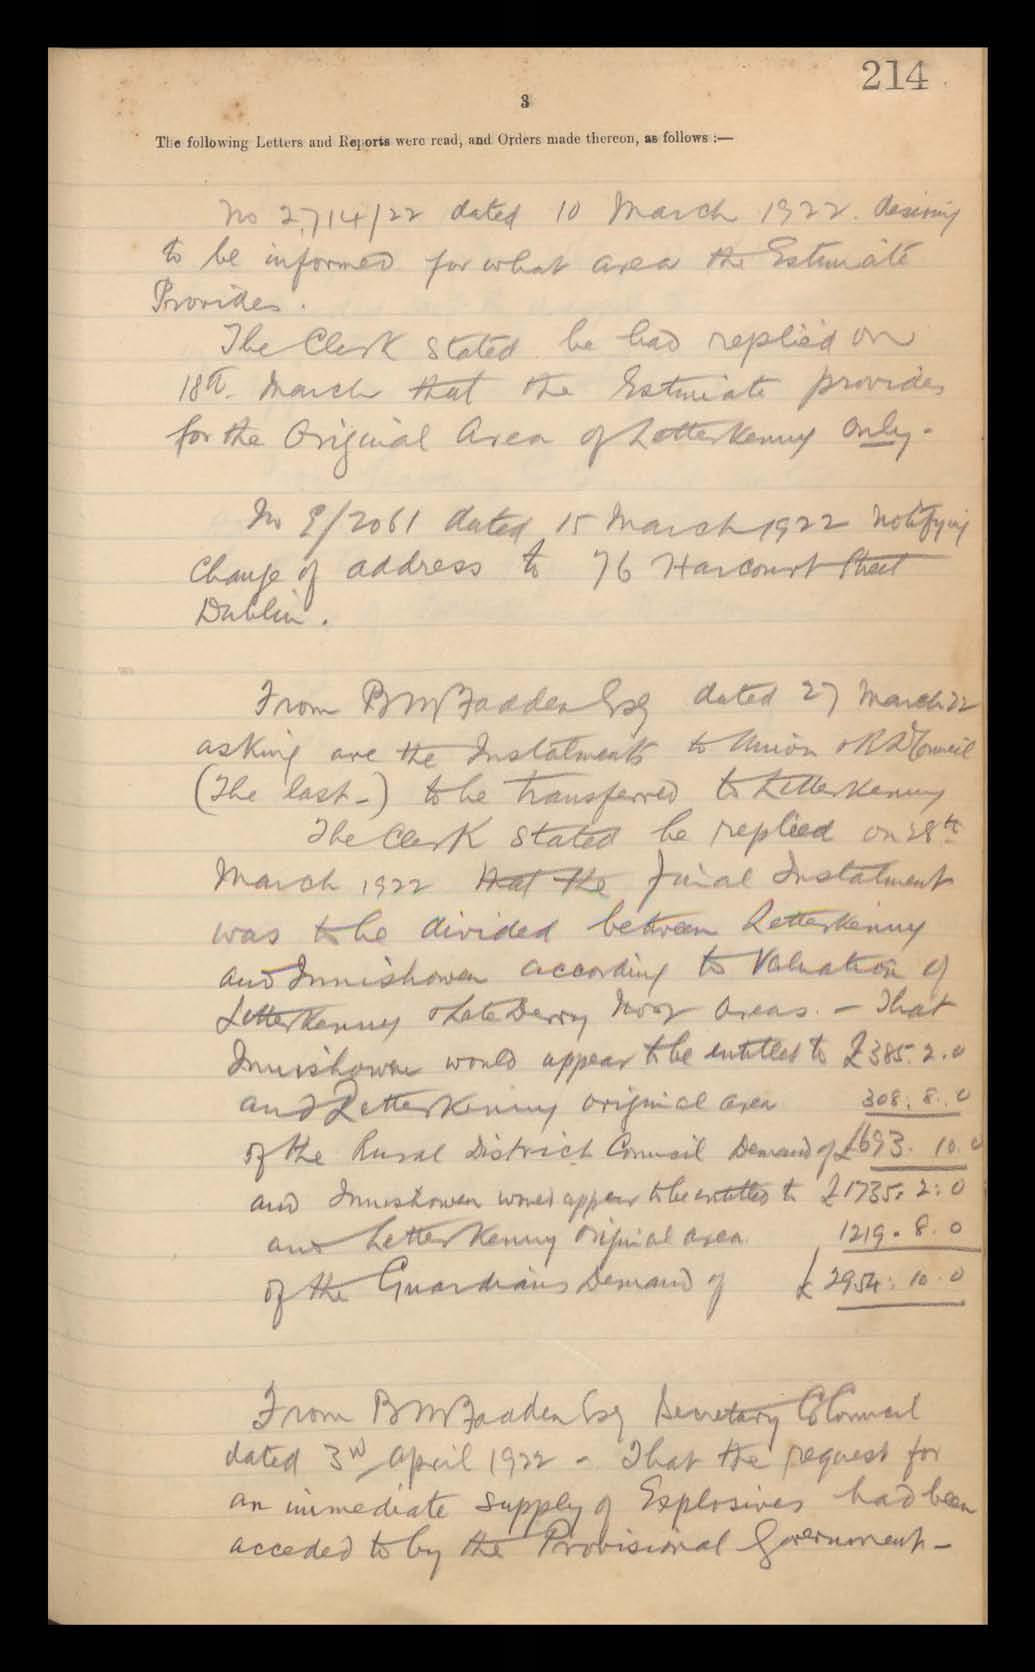 214
3
The following Letters and Reports were read, and Orders made thereon, as follows :—
No 2,714/22 dated 10 March 1922. desiring
to be informed for what area the Estimate
Provides.
The Clerk stated he had replied on
18th March that the Estimate provides
for the Original Area of Letterkenny only.
No 9/2061 dated 15 March 1922 notifying
change of address to 76 Harcourt Street
Dublin.
From B McFadden Esq dated 27 March 22
asking are the Instalments to Union & R D Council
(The last -) to be transferred to Letterkenny
The Clerk stated he replied on 28th
March 1922 that the final Instalment
was to be divided between Letterkenny
and Innishowen according to Valuation of
Letterkenny & late Derry No 2 areas. - That
Innishowen would appear to be entitled to £385. 2. 0
and Letterkenny original area 308. 8. 0
of the Rural District Council Demand of £693. 10. 0
and Innishowen would appear to be entitled to £1735. 2. 0
and Letterkenny original area 1219. 8. 0
of the Guardians Demand of £2954. 10. 0
From B McFadden Esq Secretary Co Council
dated 3rd April 1922 - That the request for
an immediate supply of Explosives had been
acceded to by the Provisional Government -